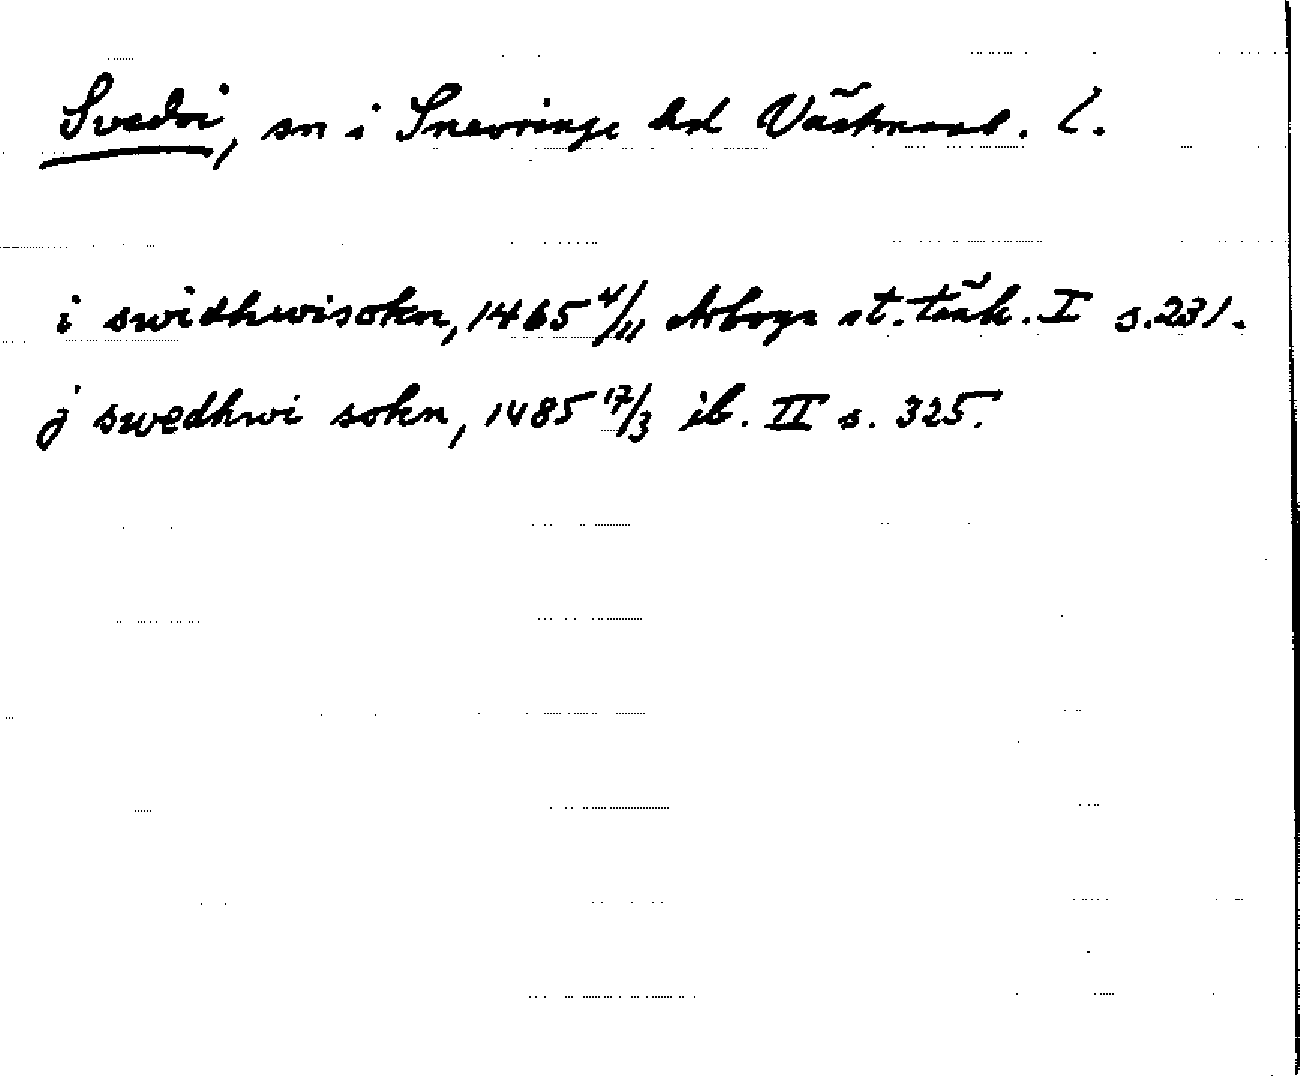 Svedvi, sn i Snevringe hd Västmanl. l.
i swidhwisokn, 1465 4/11 Arboga st. tänk. I s. 231.
j swedhwi sokn, 1485 17/3 ib. II s. 325.